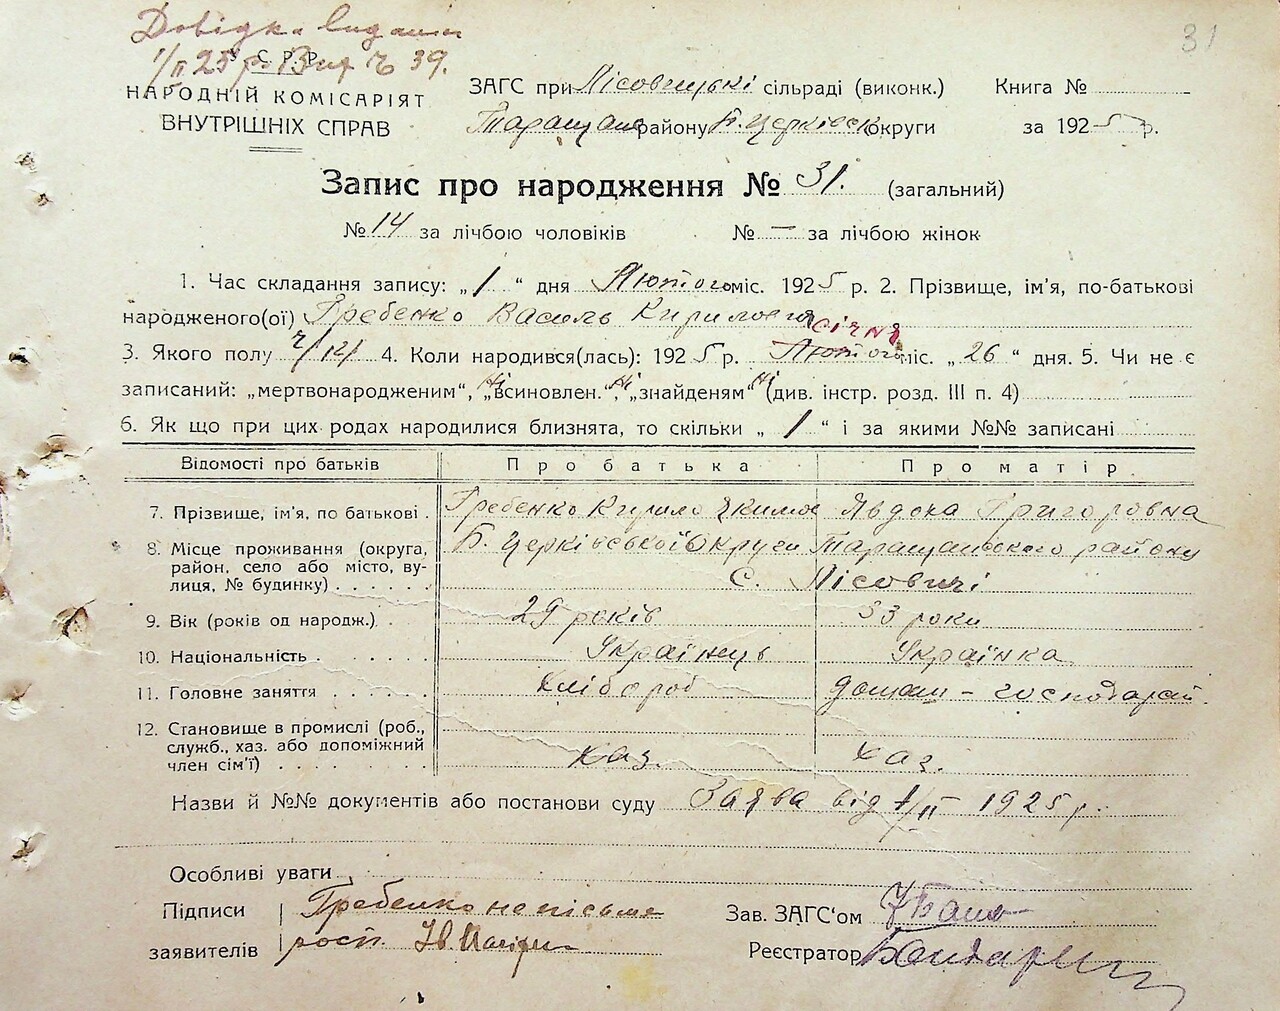 31
Довідка видана
1/II 25 р. Вих № 39.
У. С. Р. Р.
НАРОДНІЙ КОМІСАРІЯТ
ВНУТРІШНІХ СПРАВ
ЗАГС при Лісовицькі сільраді (виконк.) Книга №
Таращанс району Б. Церківськ округи за 1925 р.
Запис про народження № 31. (загальний)
№ 14 за лічбою чоловіків № — за лічбою жінок
1. Час складання запису: „1“ дня Лютого міс. 1925 р. 2. Прізвище, ім'я, по-батькові
народженого(ої) Гребенко Василь Кирилович
січня
3. Якого полу ч/12/ 4. Коли народився(лась): 1925 р. Лютого міс. „26“ дня. 5. Чи не є
записаний: „мертвонародженим“, ні „всиновлен.“, ні „знайденям“ ні (див. інстр. розд. III п. 4)
6. Як що при цих родах народилися близнята, то скільки „/“ і за якими №№ записані
Відомості про батьків Про батька Про матір
7. Прізвище, ім'я, по батькові . Гребенко Кирило Якимов Явдоха Григоровна
8. Місце проживання (округа, Б. Церківської Округи Таращанського району
район, село або місто, ву-
лиця, № будинку) . . . . . . с. Лісовичі
9. Вік (років од народж.) . 29 років 33 роки
10. Національність . . . . . . Українець Українка
11. Головне заняття . . . . . хлібороб домаш – господарст.
12. Становище в промислі (роб.,
служб., хаз. або допоміжний
член сім'ї) . . . . . . . . . хаз. хаз.
Назви й №№ документів або постанови суду Заява від 1/II 1925 р.
Особливі уваги
Підписи Гребенко неписьме
заявителів росп. Ів
Зав. ЗАГС'ом
Реєстратор